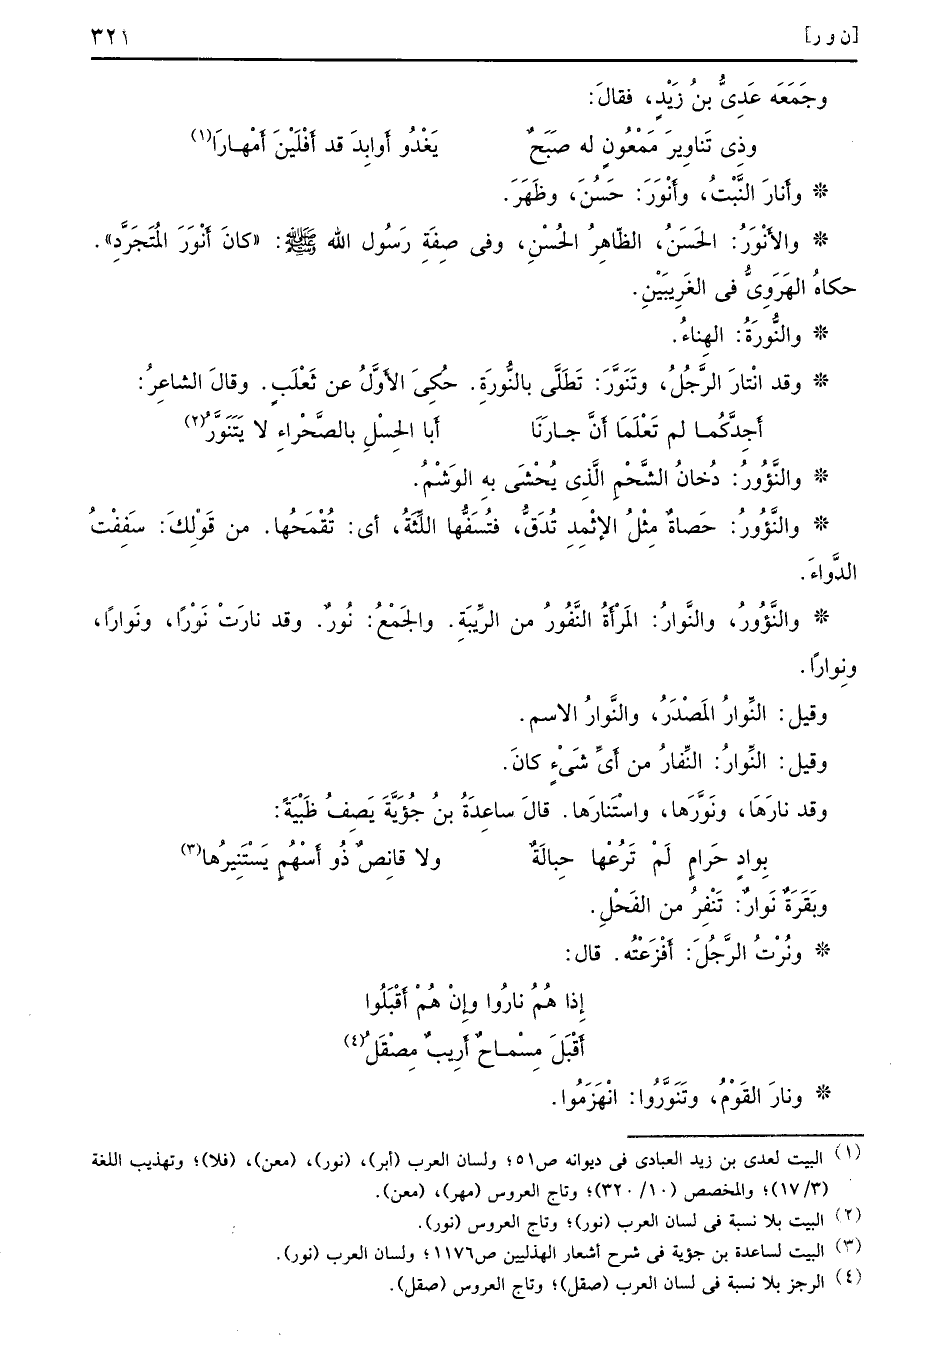 [ن و ر] ٣٢١
وجَمَعَه عَدِىُّ بنُ زَيْدٍ، فقالَ:
وذِى تَناوِيرَ مَمْعُونٍ له صَبَحٌ يَغْذُو أَوابِدَ قد أَفْلَيْنَ أَمْهـارَا(١)
* وأَنارَ النَّبْتُ، وأَنْوَرَ: حَسُنَ، وظَهَرَ.
* والأَنْوَرُ: الحَسَنُ، الظّاهِرُ الحُسْنِ، وفى صِفَةِ رَسُولِ الله ﷺ: «كانَ أَنْوَرَ المُتَجَرَّدِ».
حكاهُ الهَرَوِىُّ فى الغَرِيبَيْنِ.
* والنُّورَةُ: الهِناءُ.
* وقد انْتارَ الرَّجُلُ، وتَنَوَّرَ: تَطَلَّى بالنُّورَةِ. حُكِىَ الأوَّلُ عن ثَعْلَبٍ. وقالَ الشاعرُ:
أَجِدَّكُمـا لم تَعْلَمَا أَنَّ جـارَنَا أبا الحِسْلِ بالصَّحْراءِ لا يَتَنَوَّرُ(٢)
* والنَّؤُورُ: دُخانُ الشَّحْمِ الَّذِى يُحْشَى به الوَشْمُ.
* والنَّؤُورُ: حَصاةٌ مِثْلُ الإثْمِدِ تُدَقُّ، فتُسَفُّها اللِّثَةُ، أى: تُقْمَحُها. من قَوْلِكَ: سَفِفْتُ
الدَّواءَ.
* والنَّؤُورُ، والنَّوارُ: المَرْأَةُ النَّفُورُ من الرِّيبَةِ. والجَمْعُ: نُورٌ. وقد نارَتْ نَوْرًا، ونَوارًا،
ونِوارًا.
وقيل: النِّوارُ المَصْدَرُ، والنَّوارُ الاسم.
وقيل: النِّوارُ: النِّفارُ من أَىِّ شَىْءٍ كانَ.
وقد نارَهَا، ونَوَّرَها، واسْتَنارَها. قالَ ساعِدَةُ بنُ جُؤَيَّةَ يَصِفُ ظَبْيَةً:
بِوادٍ حَرامٍ لَمْ تَرُعْها حِبالَةٌ ولا قانِصٌ ذُو أَسْهُمٍ يَسْتَنِيرُها(٣)
وبَقَرَةٌ نَوارٌ: تَنْفِرُ من الفَحْلِ.
* ونُرْتُ الرَّجُلَ: أَفْزَعْتُه. قال:
إذا هُمُ نارُوا وإنْ هُمْ أَقْبَلُوا
أَقْبَلَ مِسْمـاحٌ أَرِيبٌ مِصْقَلُ(٤)
* ونارَ القَوْمُ، وتَنَوَّرُوا: انْهَزَمُوا.
(١) البيت لعدى بن زيد العبادى فى ديوانه ص٥١؛ ولسان العرب (أبر)، (نور)، (معن)، (فلا)؛ وتهذيب اللغة
(٣/ ١٧)؛ والمخصص (١٠/ ٣٢٠)؛ وتاج العروس (مهر)، (معن).
(٢) البيت بلا نسبة فى لسان العرب (نور)؛ وتاج العروس (نور).
(٣) البيت لساعدة بن جؤية فى شرح أشعار الهذليين ص١١٧٦؛ ولسان العرب (نور).
(٤) الرجز بلا نسبة فى لسان العرب (صقل)؛ وتاج العروس (صقل).